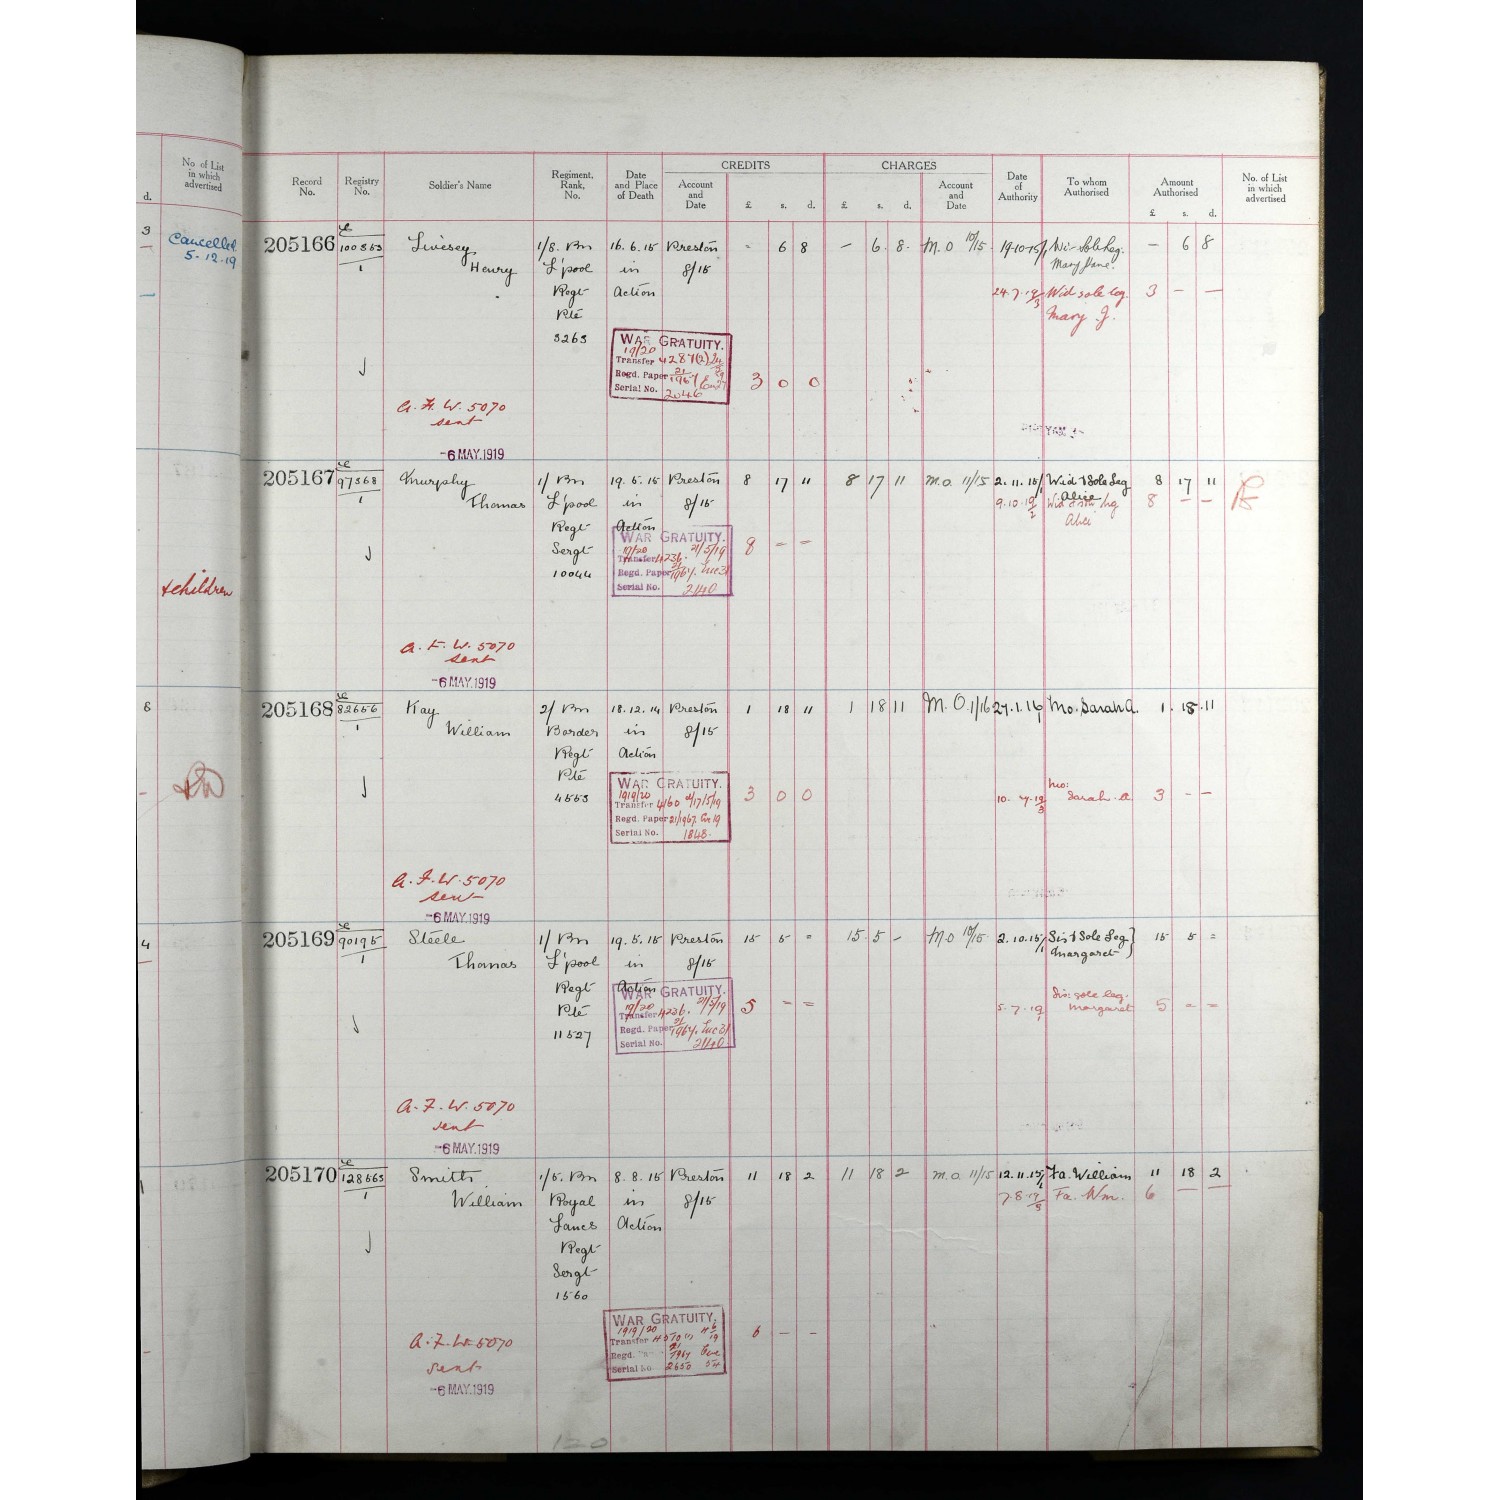 d.
No. of List
in which
advertised
3
Cancelled
5-12-19
& children
8
4
Record
No.
Registry
No.
Soldier's Name
Regiment,
Rank,
No.
Date
and Place
of Death
CREDITS
Account
and
Date
£ s. d.
CHARGES
£ s. d.
Account
and
Date
Date
of
Authority
To whom
Authorised
Amount
Authorised
£ s. d.
No. of List
in which
advertised
205166 E 100853 Livesey 1/8. Bn 16.6.15 Preston - 6 8 - 6. 8. M.O 10/15 19.10.15/1 Wi- Sole Leg. - 6 8
1 Henry L'pool in 8/15 Mary Jane.
Regt Action 24.7.19/3 Wid sole leg. 3 - -
Pte Mary J.
3263
WAR GRATUITY.
19/20
Transfer 4287(2)
Regd. Paper 21/1967
Serial No. 2046
3 0 0
A. F. W. 5070
sent
-6 MAY.1919
205167 E 97368 Murphy 1/ Bn 19.5.15 Preston 8 17 11 8 17 11 M.O. 11/15 2.11.15/1 Wid & Sole Leg 8 17 11
1 Thomas L'pool in 8/15 Alice
9.10.19/2 Wid & sole leg 8 - -
Alice
Regt Action
Sergt
10044
WAR GRATUITY.
19/20 21/5/19
Transfer 4236.
Regd. Paper 21/1967.
Serial No. 2140
8 - -
A. F. W. 5070
sent
-6 MAY.1919
205168 E 82656 Kay 2/ Bn 18.12.14 Preston 1 18 11 1 18 11 M.O. 1/16 27.1.16/1 Mo. Sarah A. 1. 18.11
1 William Border in 8/15
Regt Action
Pte
4553
WAR GRATUITY.
1919/20
Transfer 4160 17/5/19
Regd. Paper 21/1967.
Serial No. 1848.
3 0 0 10.7.19/3 Mo: Sarah. A. 3 - -
A. F. W. 5070
sent
-6 MAY.1919
205169 E 90195 Steele 1/ Bn 19.5.15 Preston 15 5 - 15. 5 - M.O 10/15. 2.10.15/1 Sis & Sole Leg 15 5 -
1 Thomas L'pool in 8/15 Margaret
Regt Action
Pte
11527
WAR GRATUITY.
19/20 21/5/19
Transfer 4236.
Regd. Paper 21/1967.
Serial No. 2140
5 - - 5.7.19/1 Sis: sole leg. Margaret 5 - -
A. F. W. 5070
sent
-6 MAY.1919
205170 E 128663 Smith 1/5. Bn 8.8.15 Preston 11 18 2 11 18 2 M.O. 11/15 12.11.15/1 Fa. William 11 18 2
1 William Royal in 8/15 7.8.19/3 Fa. Wm. 6 - -
Lancs Action
Regt
Sergt
1560
WAR GRATUITY.
1919/20
Transfer
Regd.
Serial No. 2650
6 - -
A. F. W. 5070
sent
-6 MAY.1919
120